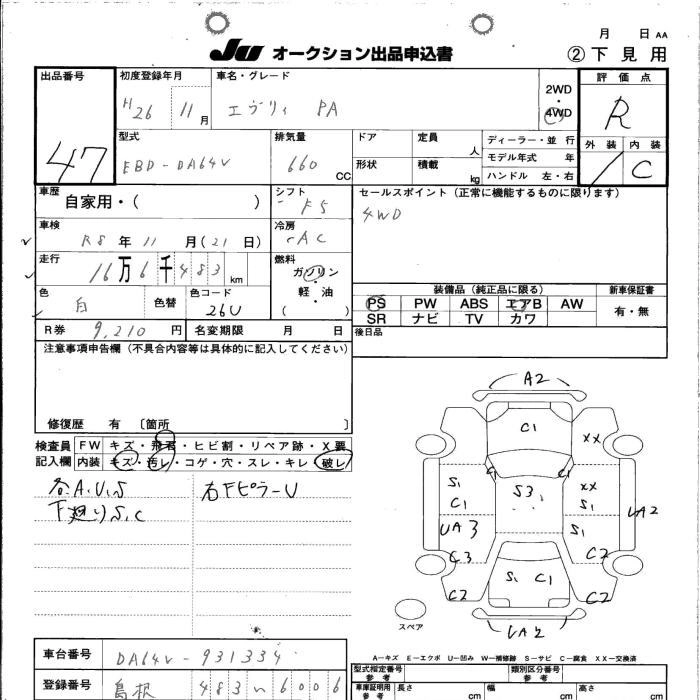 月 日 AA
JU オークション出品申込書 ②下見用
出品番号 47
初度登録年月 H26 11月
車名・グレード エブリィ PA
2WD・4WD
評価点 R
外装 内装 C
型式 EBD-DA64V
排気量 660 CC
ドア
形状
定員 人
積載 kg
ディーラー・並行
モデル年式 年
ハンドル 左・右
車歴 自家用・( )
シフト F5
セールスポイント (正常に機能するものに限ります)
4WD
車検 R8年11月(21日)
冷房 AC
走行 16万6千483km
燃料 ガソリン・軽油
( )
色 白 色替
色コード 26U
装備品 (純正品に限る)
PS PW ABS エアB AW
SR ナビ TV カワ
新車保証書
有・無
R券 9,210円
名変期限 月 日
後日品
注意事項申告欄 (不具合内容等は具体的に記入してください)
修復歴 有 〔箇所 〕
検査員記入欄
FW キズ・飛石・ヒビ割・リペア跡・X要
内装 キズ・汚レ・コゲ・穴・スレ・キレ・破レ
各A.U.S
下廻りS.C
右Fピラー U
A2
C1
XX
C1 C1
S1 S3 XX
C1 S1
UA3 UA2
C3 C2
S1 C1
C2 C2
UA2
スペア
A-キズ E-エクボ U-凹み W-補修跡 S-サビ C-腐食 XX-交換済
車台番号 DA64V-931334
登録番号 島根 483 い 6006
型式指定番号 参考
類別区分番号 参考
車庫証明用 参考
長さ cm
幅 cm
高さ cm